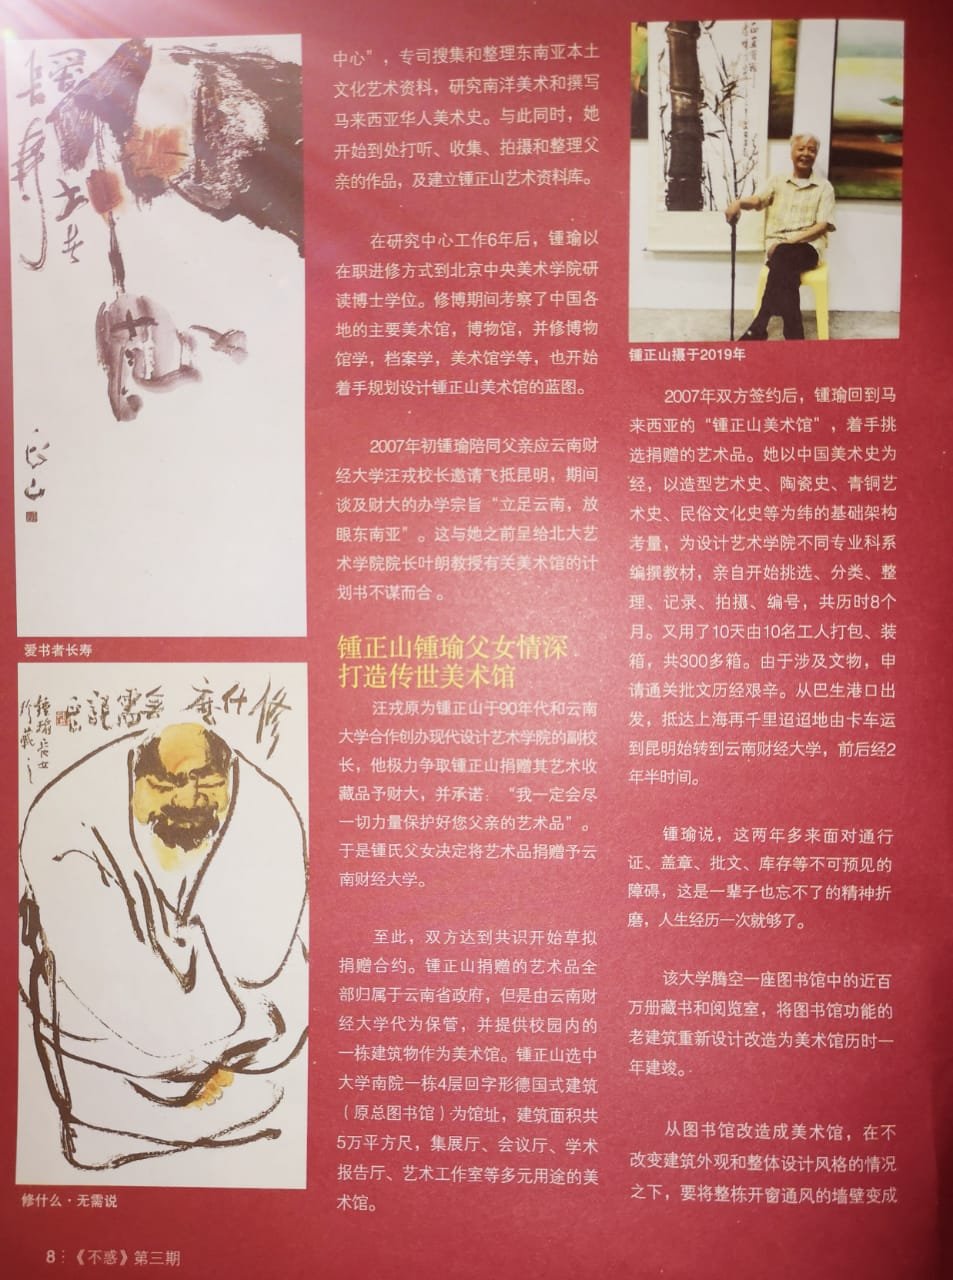 爱书者长寿
修什么·无需说
中心”，专司搜集和整理东南亚本土
文化艺术资料，研究南洋美术和撰写
马来西亚华人美术史。与此同时，她
开始到处打听、收集、拍摄和整理父
亲的作品，及建立锺正山艺术资料库。
在研究中心工作6年后，锺瑜以
在职进修方式到北京中央美术学院研
读博士学位。修博期间考察了中国各
地的主要美术馆，博物馆，并修博物
馆学，档案学，美术馆学等，也开始
着手规划设计锺正山美术馆的蓝图。
2007年初锺瑜陪同父亲应云南财
经大学汪戎校长邀请飞抵昆明，期间
谈及财大的办学宗旨“立足云南，放
眼东南亚”。这与她之前呈给北大艺
术学院院长叶朗教授有关美术馆的计
划书不谋而合。
锺正山锺瑜父女情深
打造传世美术馆
汪戎原为锺正山于90年代和云南
大学合作创办现代设计艺术学院的副校
长，他极力争取锺正山捐赠其艺术收
藏品予财大，并承诺：“我一定会尽
一切力量保护好您父亲的艺术品”。
于是锺氏父女决定将艺术品捐赠予云
南财经大学。
至此，双方达到共识开始草拟
捐赠合约。锺正山捐赠的艺术品全
部归属于云南省政府，但是由云南财
经大学代为保管，并提供校园内的
一栋建筑物作为美术馆。锺正山选中
大学南院一栋4层回字形德国式建筑
（原总图书馆）为馆址，建筑面积共
5万平方尺，集展厅、会议厅、学术
报告厅、艺术工作室等多元用途的美
术馆。
锺正山摄于2019年
2007年双方签约后，锺瑜回到马
来西亚的“锺正山美术馆”，着手挑
选捐赠的艺术品。她以中国美术史为
经，以造型艺术史、陶瓷史、青铜艺
术史、民俗文化史等为纬的基础架构
考量，为设计艺术学院不同专业科系
编撰教材，亲自开始挑选、分类、整
理、记录、拍摄、编号，共历时8个
月。又用了10天由10名工人打包、装
箱，共300多箱。由于涉及文物，申
请通关批文历经艰辛。从巴生港口出
发，抵达上海再千里迢迢地由卡车运
到昆明始转到云南财经大学，前后经2
年半时间。
锺瑜说，这两年多来面对通行
证、盖章、批文、库存等不可预见的
障碍，这是一辈子也忘不了的精神折
磨，人生经历一次就够了。
该大学腾空一座图书馆中的近百
万册藏书和阅览室，将图书馆功能的
老建筑重新设计改造为美术馆历时一
年建竣。
从图书馆改造成美术馆，在不
改变建筑外观和整体设计风格的情况
之下，要将整栋开窗通风的墙壁变成
8 ：《不惑》第三期